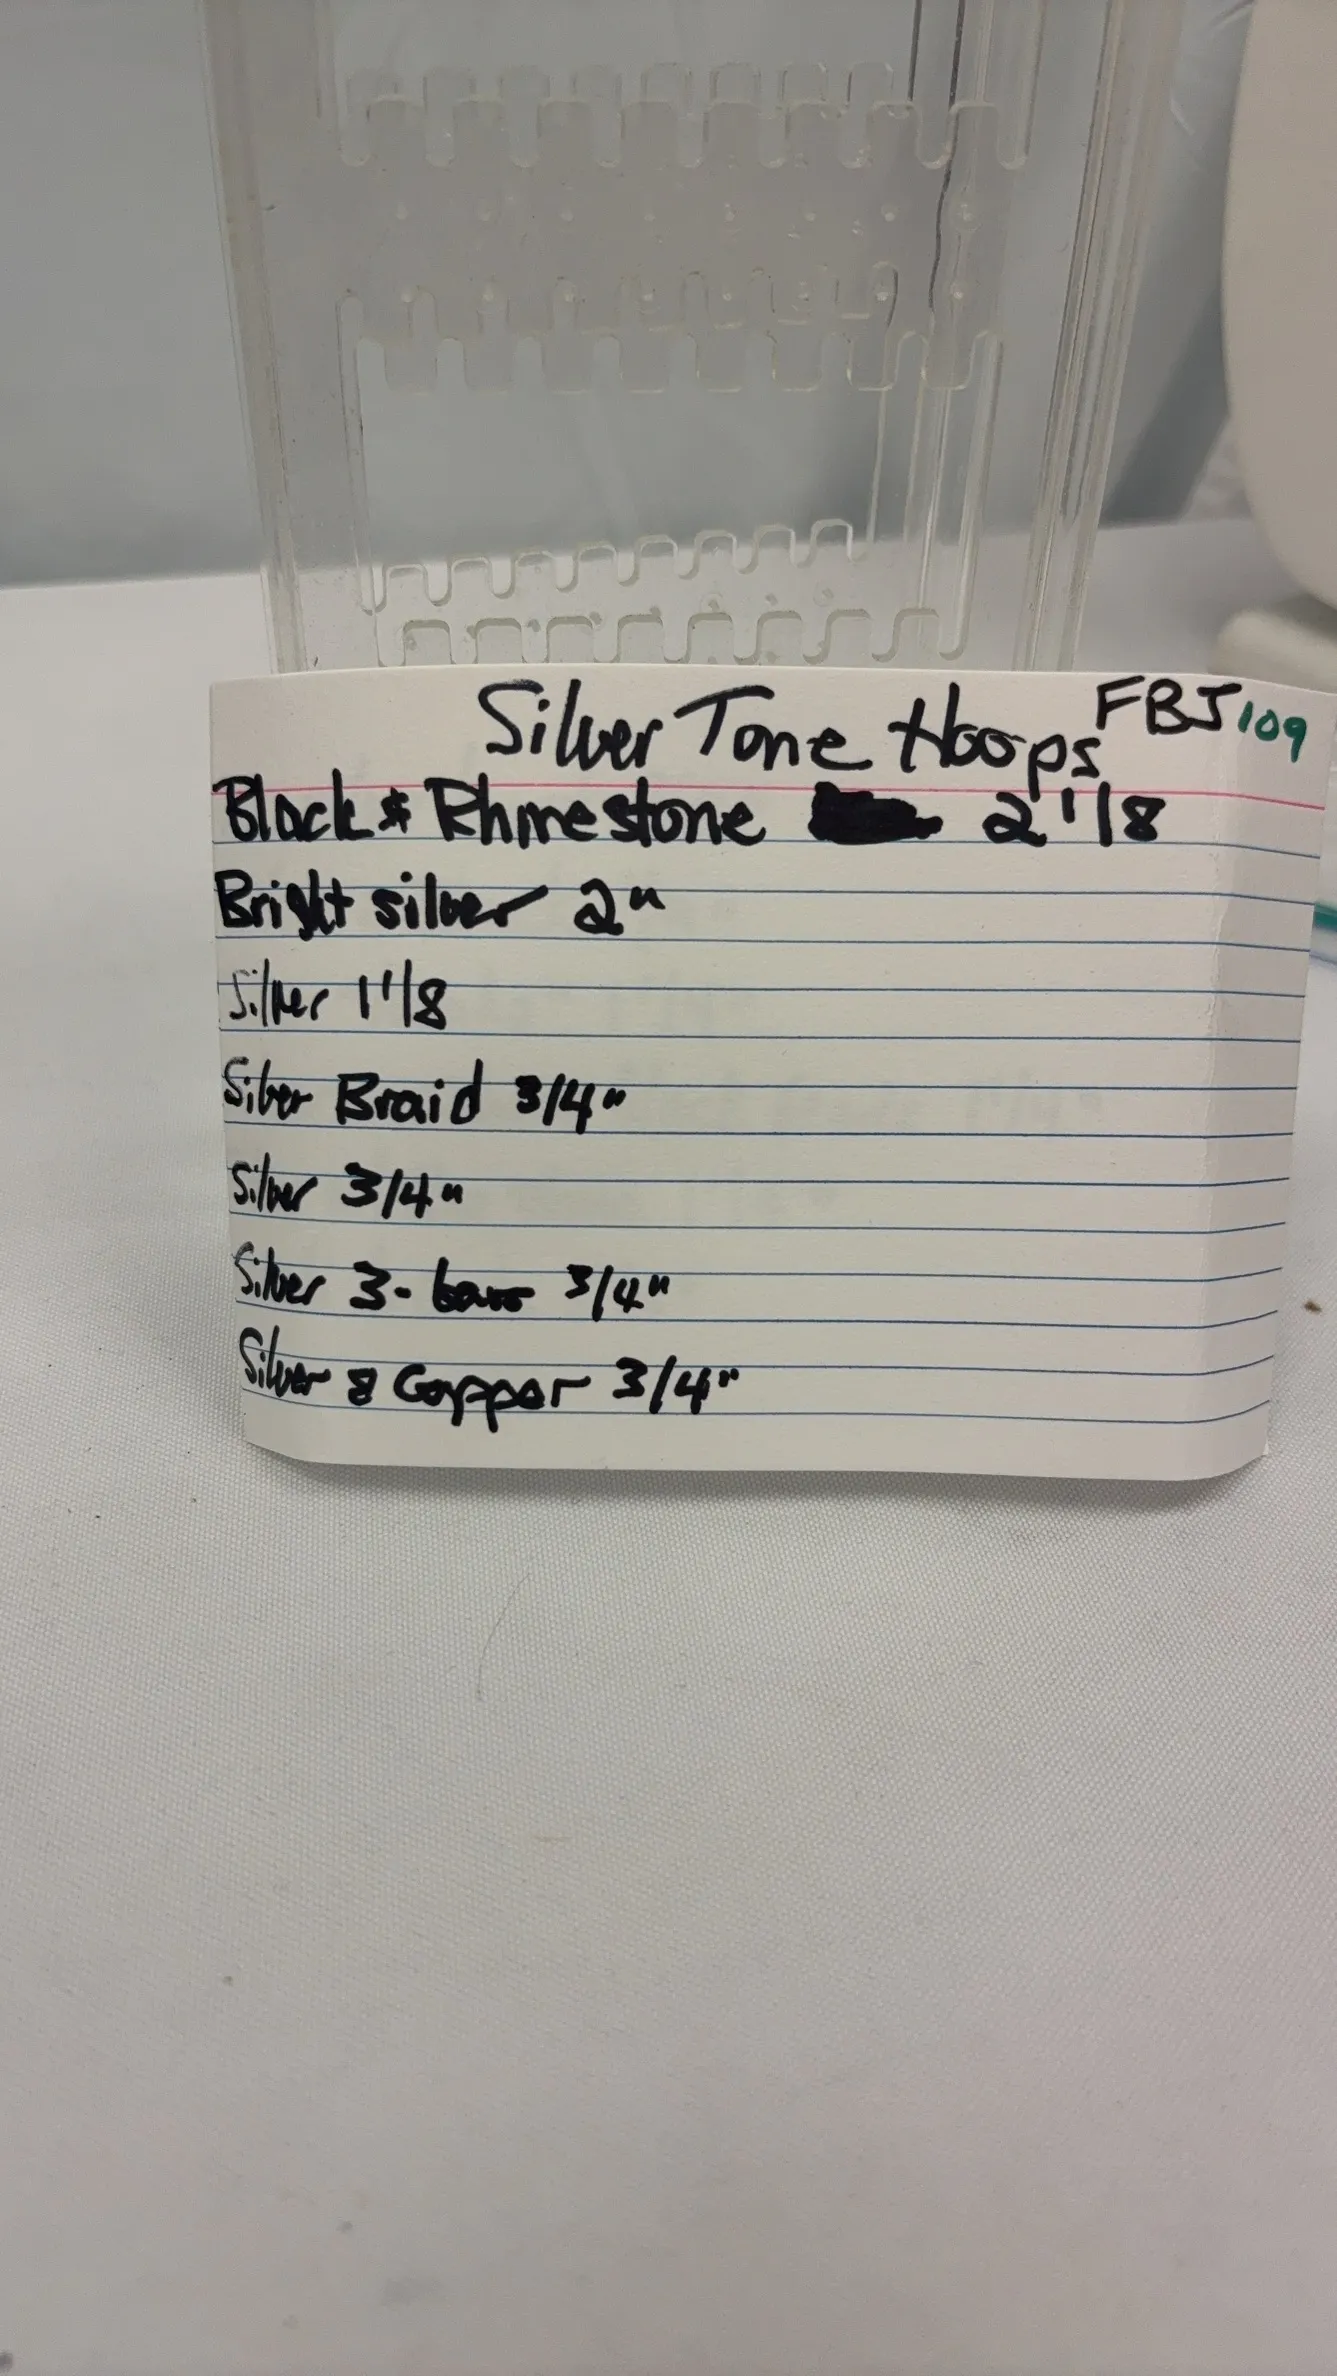 Silver Tone Hoops FBJ109
Black & Rhinestone 2 1/8
Bright silver 2"
Silver 1 1/8
Silver Braid 3/4"
Silver 3/4"
Silver 3-bars 3/4"
Silver & Copper 3/4"